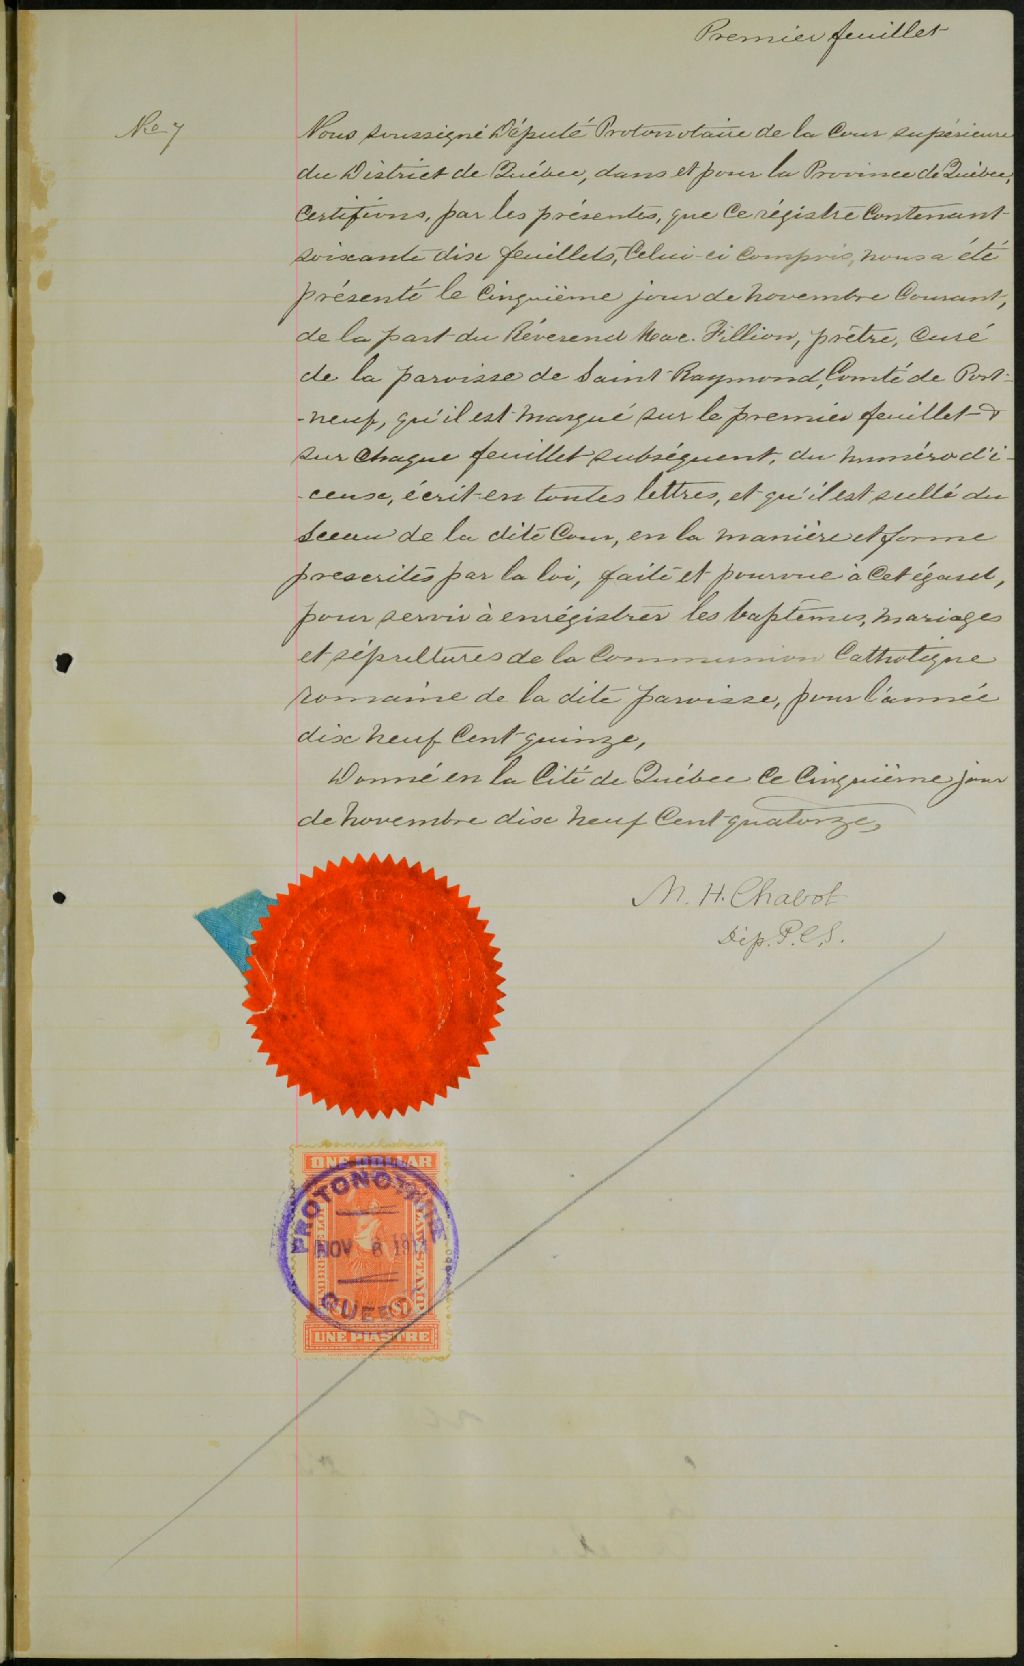 Premier feuillet
No 7
Nous soussigné Député Protonotaire de la Cour supérieure
du District de Québec, dans et pour la Province de Québec,
Certifions, par les présentes, que ce régistre contenant
soixante dix feuillets, Celui-ci compris, nous a été
présenté le Cinquième jour de novembre Courant,
de la part du Révérend Fillion, prêtre, Curé
de la paroisse de Saint Raymond, Comté de Port-
-neuf, qu'il est marqué sur le premier feuillet &
sur chaque feuillet subséquent, du numéro d'i-
-ceux, écrit en toutes lettres, et qu'il est scellé du
Sceau de la dite Cour, en la manière et forme
prescrites par la loi, faite et pourvue à cet égard,
pour servir à enrégistrer les baptêmes, mariages
et sépultures de la Communion Catholique
romaine de la dite paroisse, pour l'année
dix neuf Cent quinze,
Donné en la Cité de Québec ce Cinquième jour
de novembre dix neuf Cent quatorze,
M. H. Chabot
Dép. P.C.S.
ONE DOLLAR
PROTONOTAIRE
NOV 6 1914
QUEBEC
LAW STAMP
$1
UNE PIASTRE